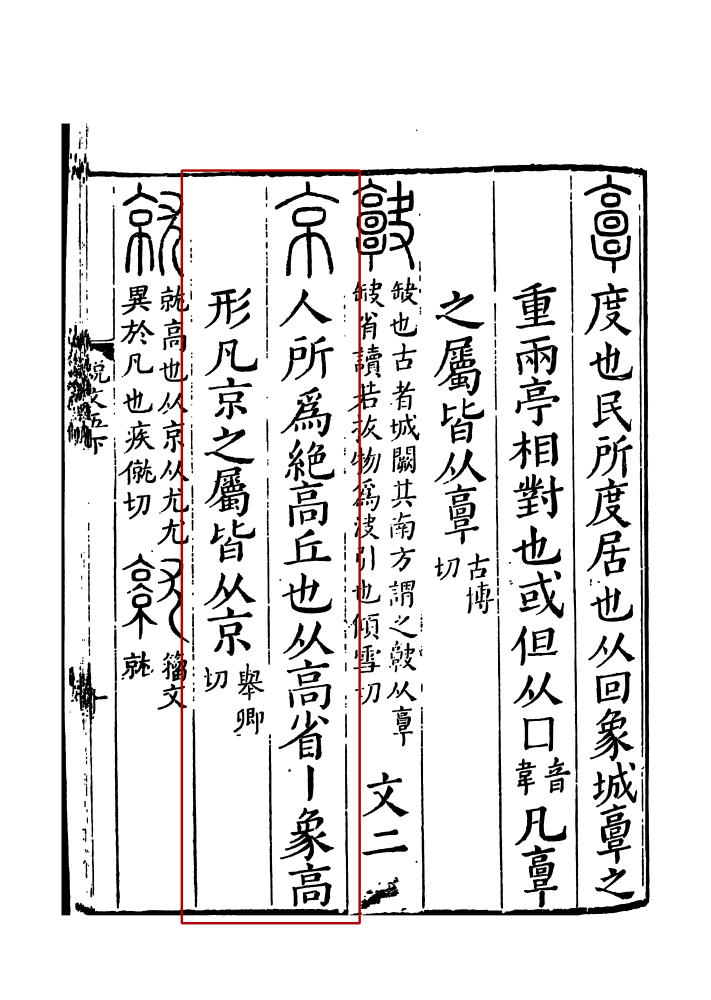 𩫖度也民所度居也从回象城𩫖之
重兩亭相對也或但从口音韋凡𩫖
之屬皆从𩫖古博切
𩫨缺也古者城闕其南方謂之𩫨从𩫖
缺省讀若拔物爲波引也傾雪切 文二
京人所爲絶高丘也从高省丨象高
形凡京之屬皆从京舉卿切
就就高也从京从尤尤
異於凡也疾僦切
籀文
就
説文五下
十